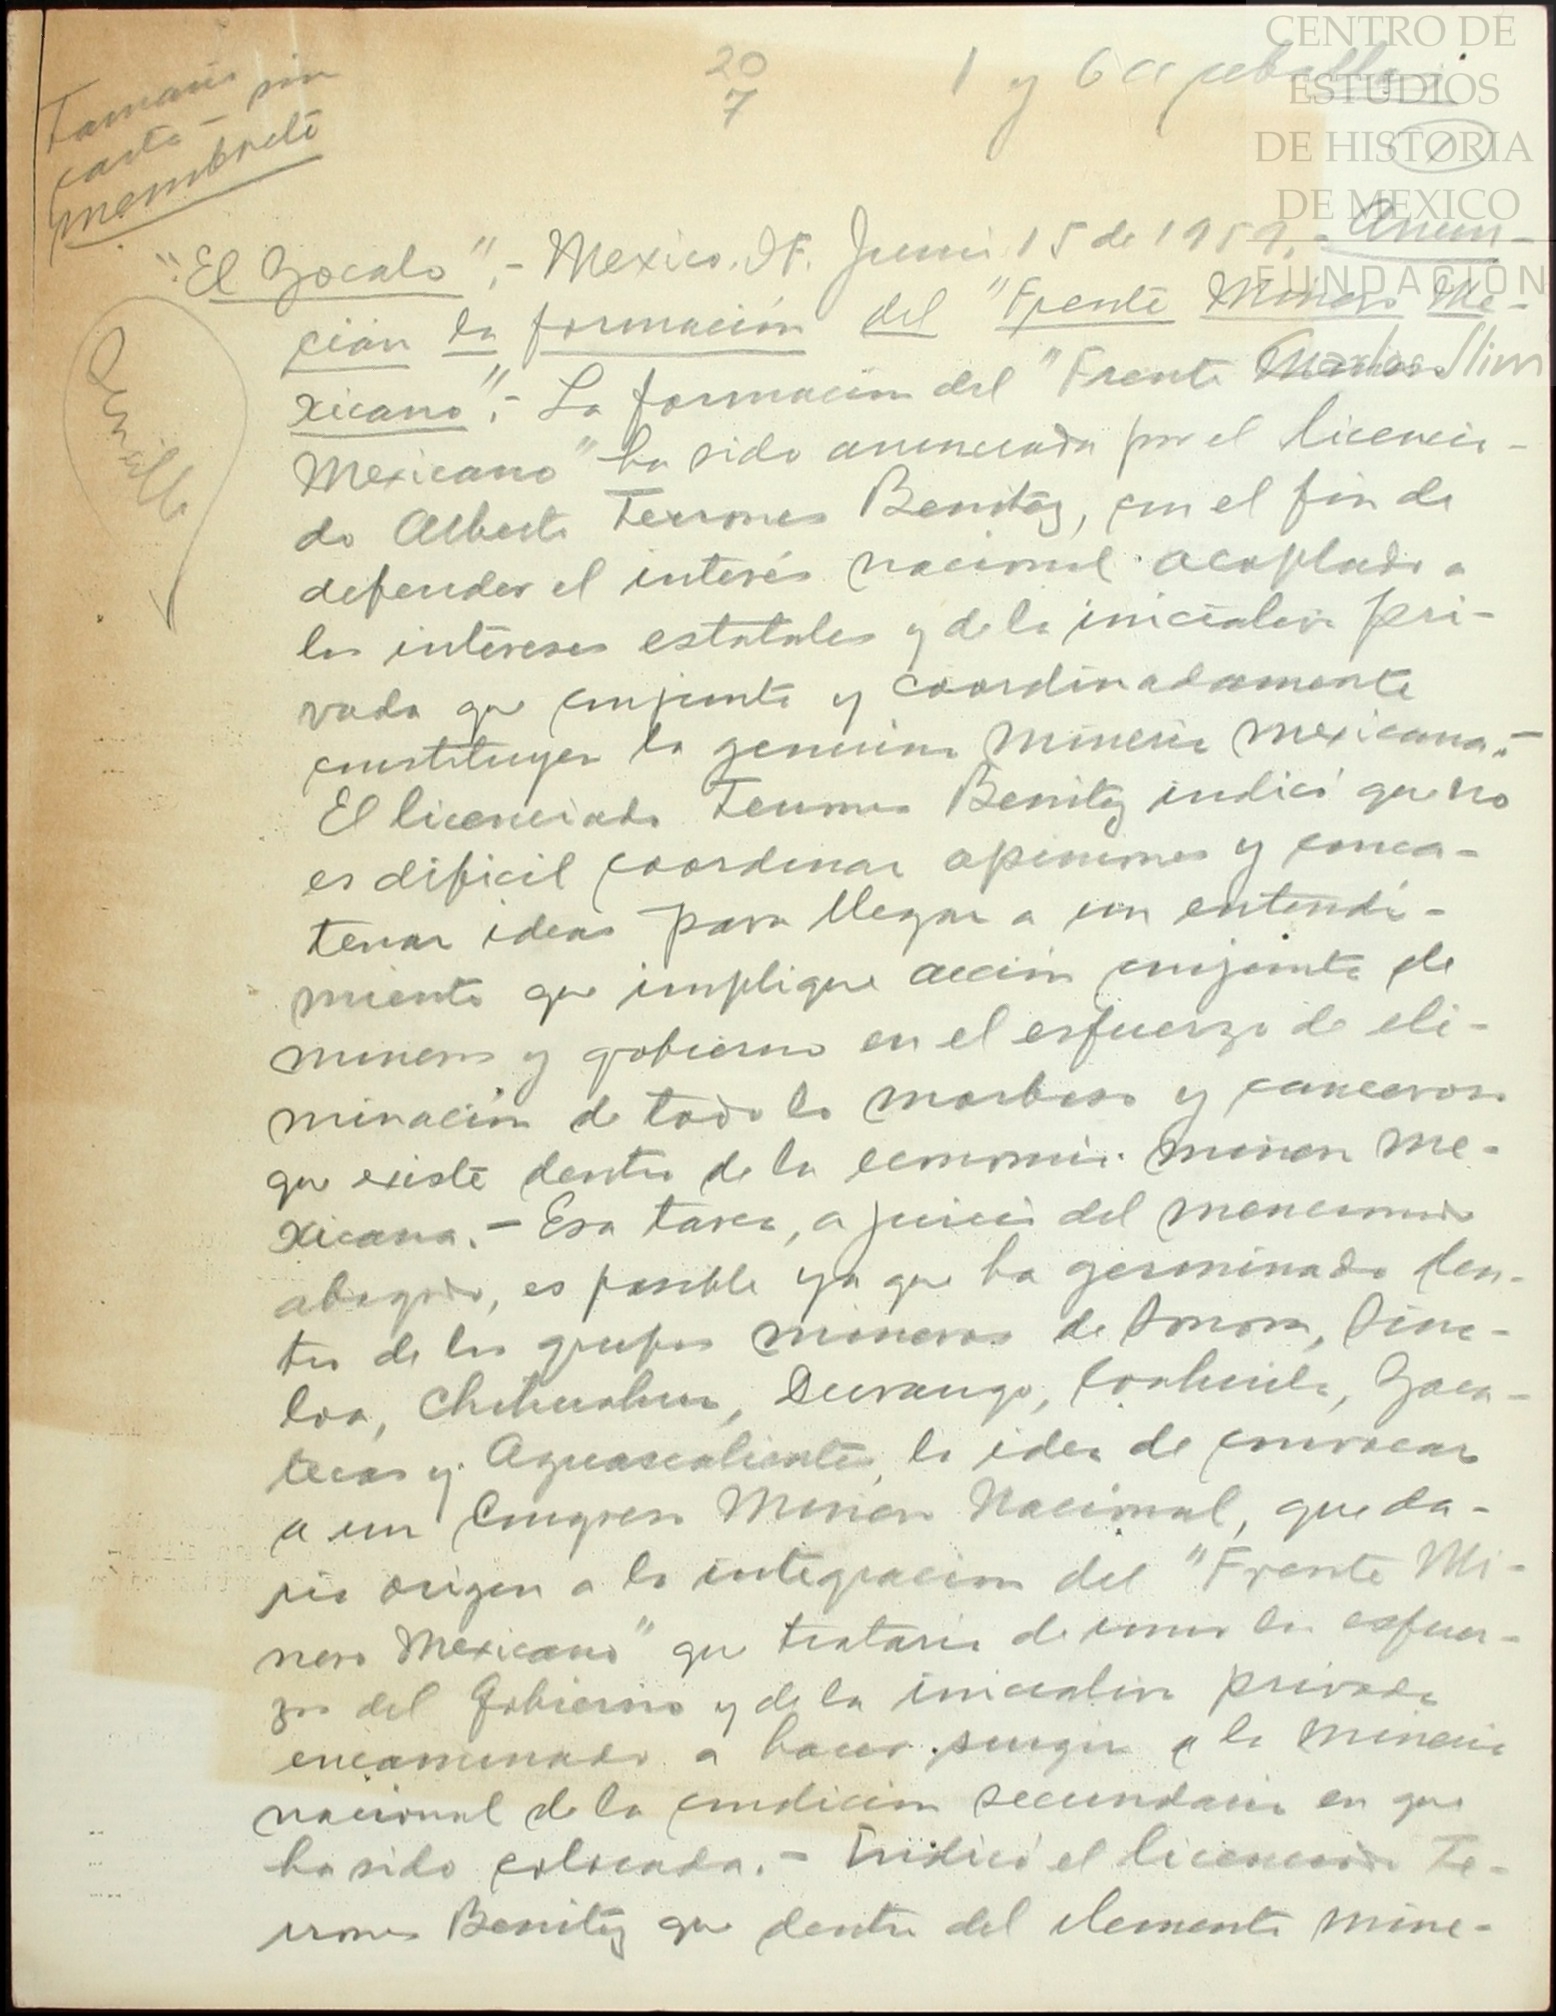 Tamaño
carta - sin
membrete
20
7
1 y 6 a
CENTRO DE
ESTUDIOS
DE HISTORIA
DE MEXICO
FUNDACIÓN
Carlos Slim
Sencillo
"El Zocalo".- Mexico, D.F. Junio 15 de 1959.- Anun-
cian la formación del "Frente Minero Me-
xicano".- La formación del "Frente Minero
Mexicano" ha sido anunciada por el licencia-
do Alberto Terrones Benitez, con el fin de
defender el interés nacional acoplado a
los intereses estatales y de la iniciativa pri-
vada que conjunta y coordinadamente
constituyen la genuina mineria mexicana.-
El licenciado Terrones Benitez indicó que no
es dificil coordinar opiniones y conca-
tenar ideas para llegar a un entendi-
miento que implique acción conjunta de
mineros y gobierno en el esfuerzo de eli-
minación de todo lo morboso y canceroso
que existe dentro de la economia minera me-
xicana.- Esa tarea, a juicio del mencionado
abogado, es posible ya que ha germinado den-
tro de los grupos mineros de Sonora, Sina-
loa, Chihuahua, Durango, Coahuila, Zaca-
tecas y Aguascalientes, la idea de convocar
a un Congreso Minero Nacional, que da-
ria origen a la integracion del "Frente Mi-
nero Mexicano" que trataria de unir los esfuer-
zos del Gobierno y de la iniciativa privada
encaminado a hacer surgir a la mineria
nacional de la condicion secundaria en que
ha sido colocada.- Indicó el licenciado Te-
rrones Benitez que dentro del elemento mine-